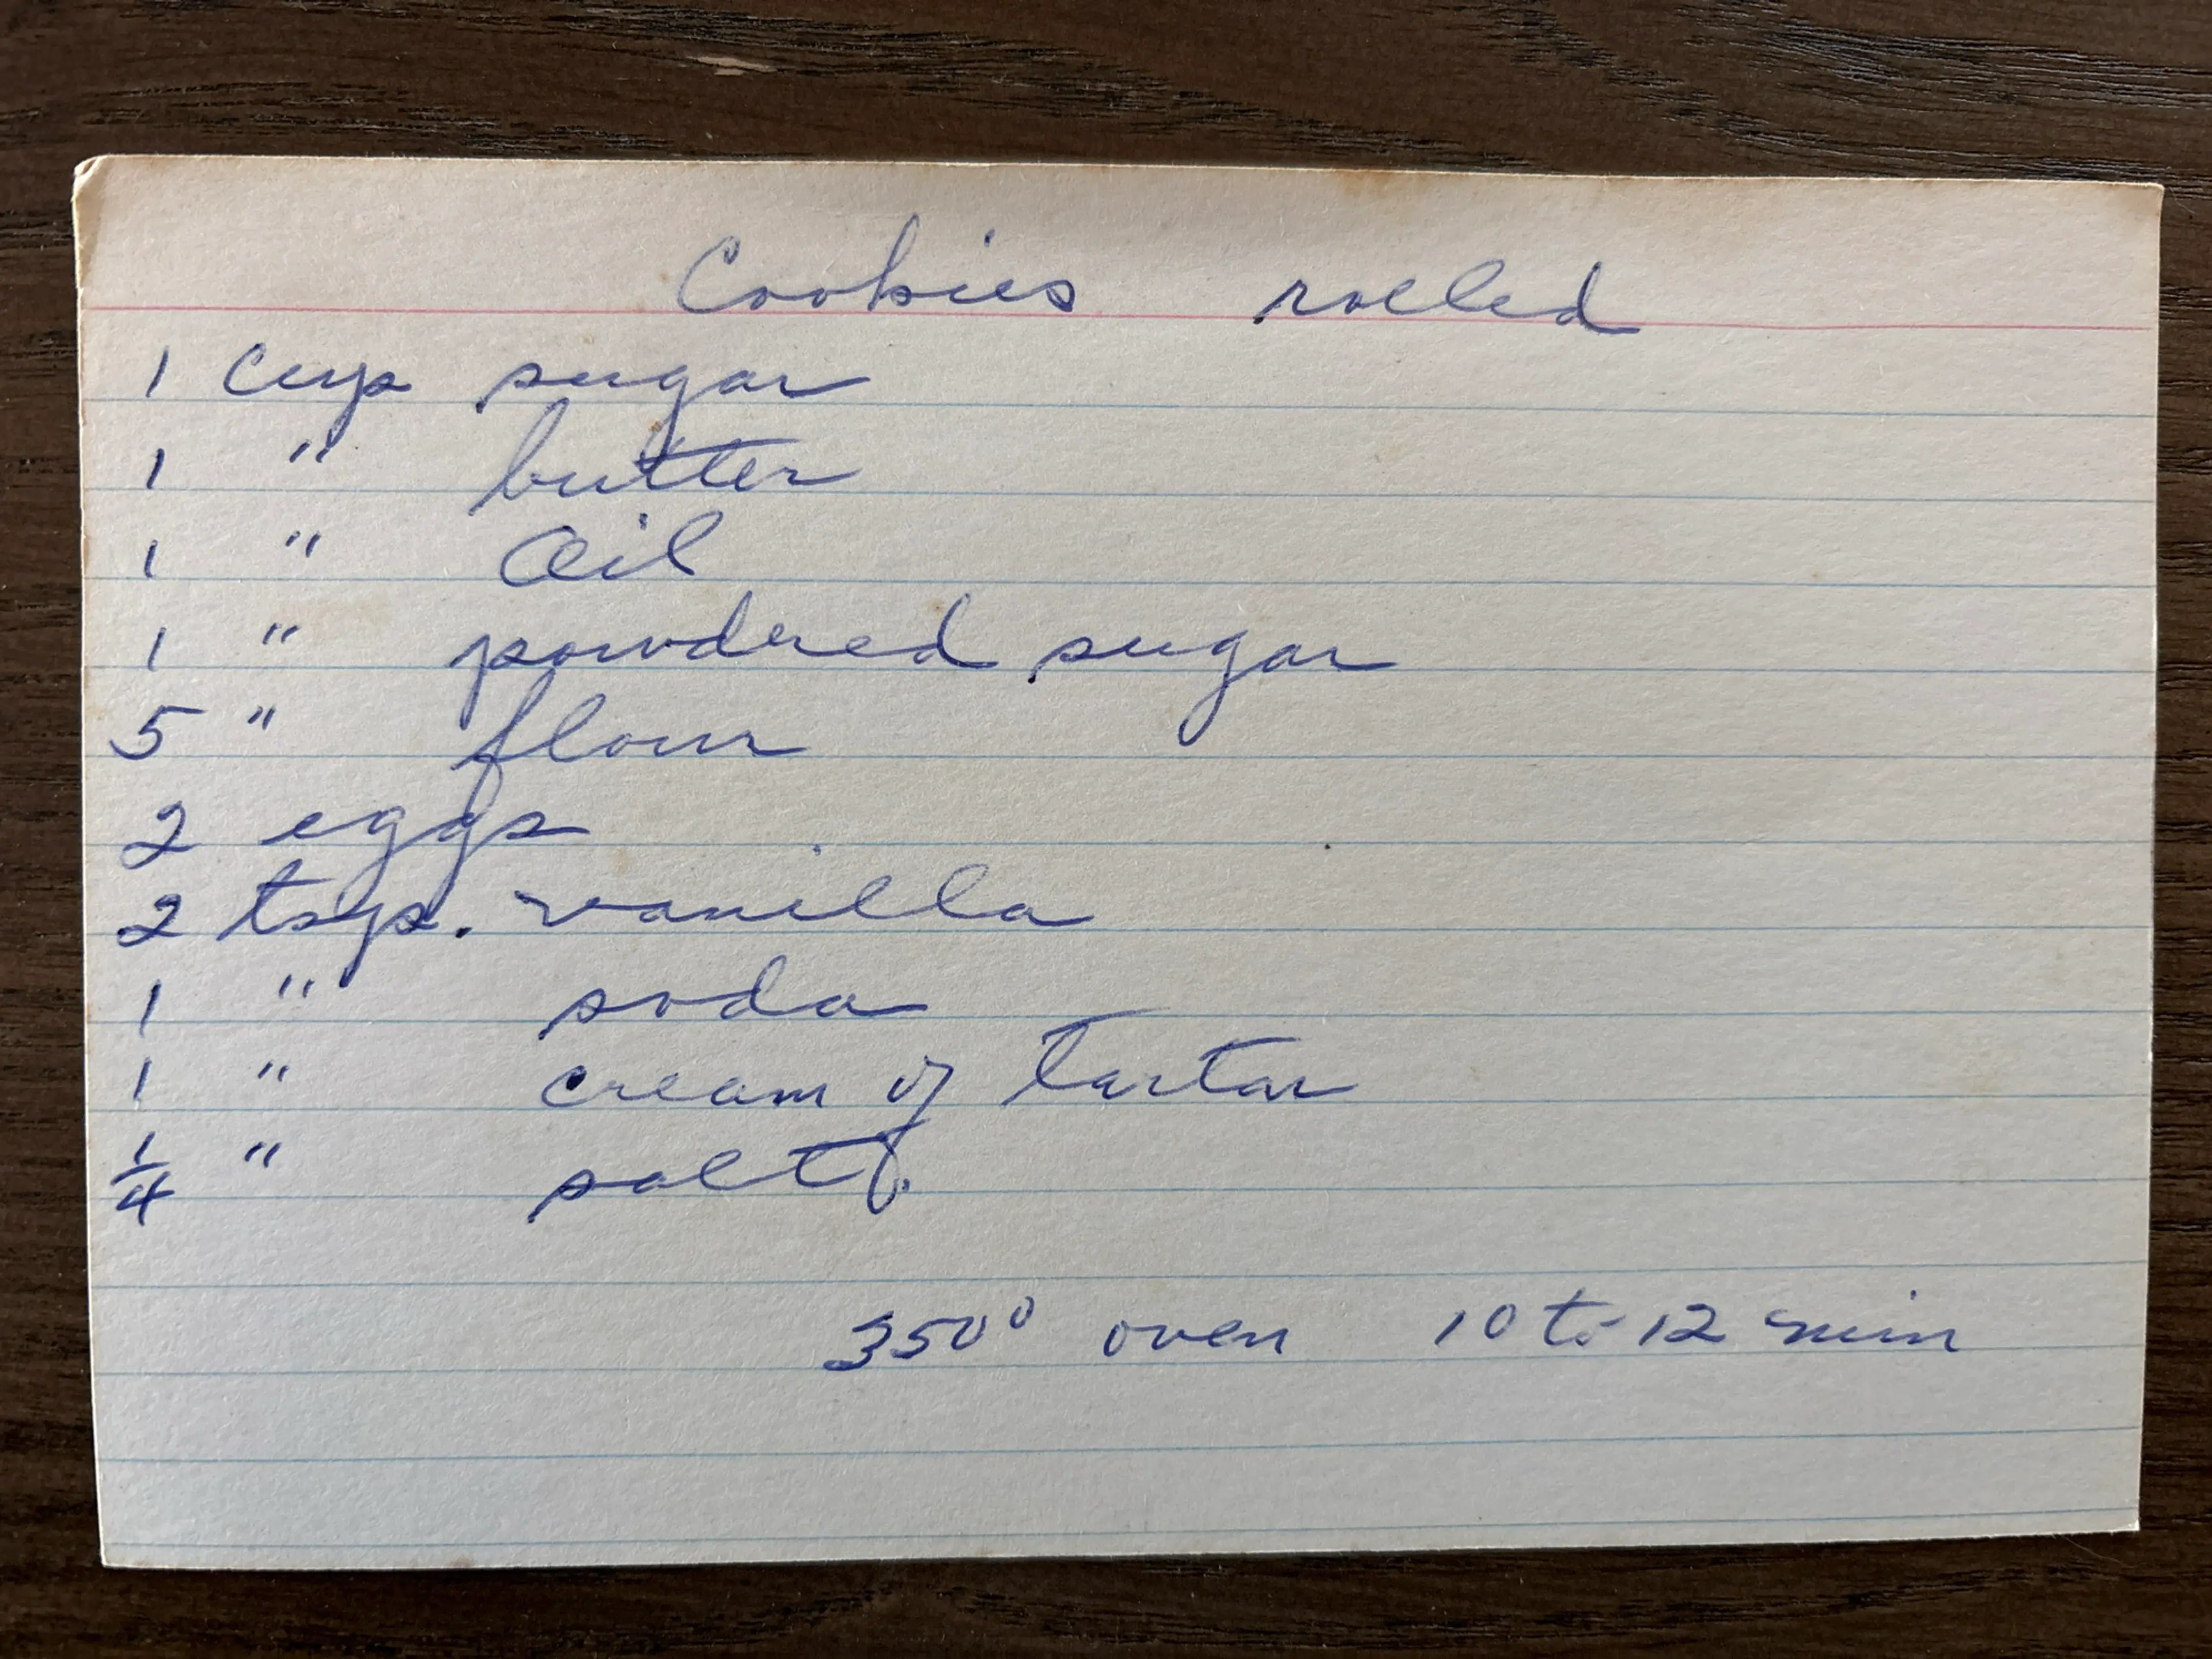 Cookies rolled
1 cup sugar
1 " butter
1 " Oil
1 " powdered sugar
5 " flour
2 eggs
2 tsp. vanilla
1 " soda
1 " cream of Tartar
1/4 " salt
350° oven 10 to 12 min